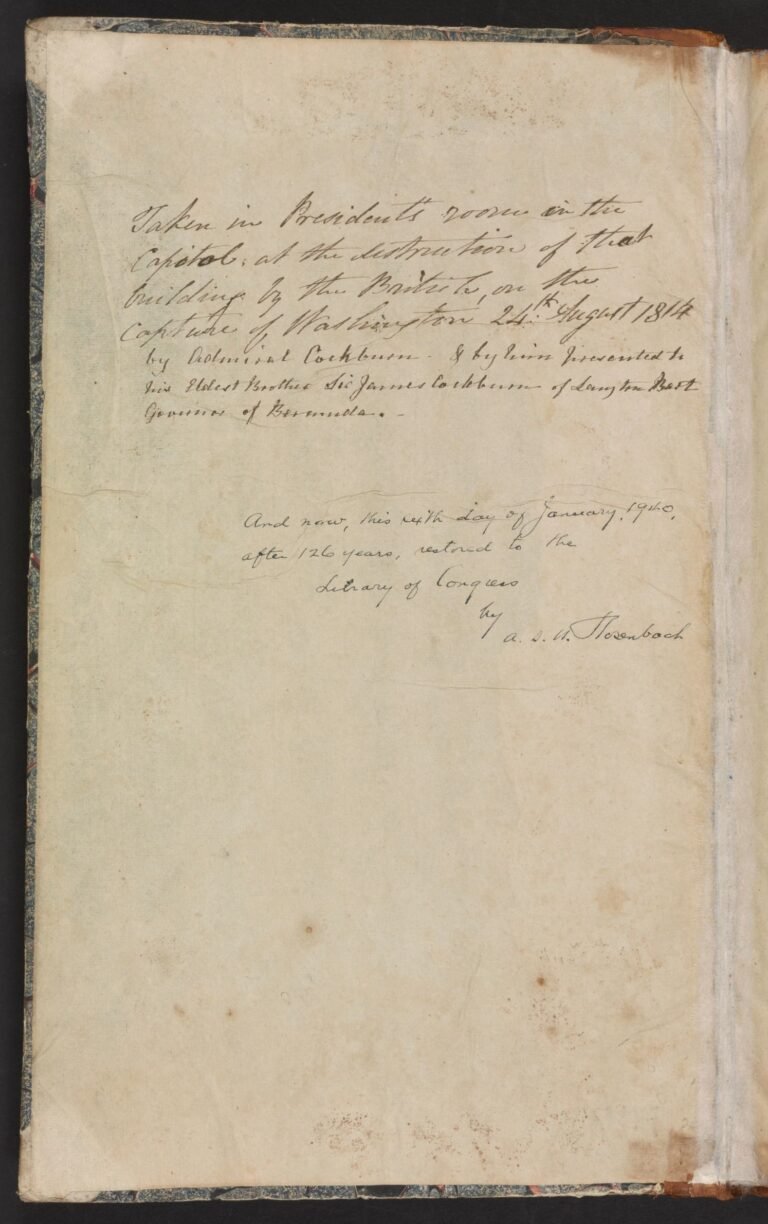 Taken in President's room in the
Capitol, at the destruction of that
building by the British, on the
capture of Washington 24th August 1814
by Admiral Cockburn. & by him presented to
his Eldest Brother Sir James Cockburn of Langton Bart
Governor of Bermuda. -
And now, this sixth day of January, 1940,
after 126 years, restored to the
Library of Congress
by
A. S. W. Rosenbach